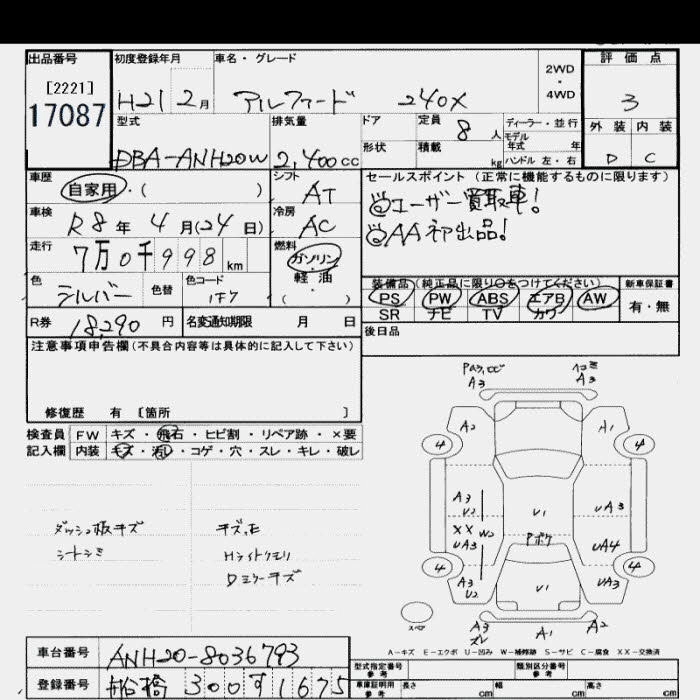 出品番号 初度登録年月 車名・グレード 2WD・4WD 評価点
[2221]
17087 H21 2月 アルファード 240X 3
型式 排気量 ドア 定員 8人 ディーラー・並行 外装 内装
モデル年式 年
DBA-ANH20W 2,400cc 形状 積載 kg ハンドル 左・右 D C
車歴 シフト セールスポイント (正常に機能するものに限ります)
自家用・( ) AT ◎ユーザー買取車!
車検 R8年4月(24日) 冷房 AC ◎AA初出品!
走行 7万0千998km 燃料 ガソリン・軽油・( )
装備品 (純正品に限り○をつけてください) 新車保証書
色 シルバー 色替 色コード 1F7 PS PW ABS エアB AW 有・無
SR ナビ TV カワ
R券 18,290円 名変通知期限 月 日 後日品
注意事項申告欄 (不具合内容等は具体的に記入して下さい)
修復歴 有 [箇所 ]
検査員 FW キズ・飛石・ヒビ割・リペア跡・×要
記入欄 内装 キズ・汚れ・コゲ・穴・スレ・キレ・破レ
ダッシュ板キズ キズ,E
シートシミ Hライトクモリ
Dミラーキズ
A3 ヘコミ A3
A2 A1
4 4
A3 U2 U1 UA3
XX W2 UA3 Pボケ UA4
4 4
A3 U2 U1 UA3
スペア A3 ズレ A1 A2
A-キズ E-エクボ U-凹み W-補修跡 S-サビ C-腐食 XX-交換済
車台番号 ANH20-8036793 型式指定番号 参考 類別区分番号 参考
登録番号 船橋 300す1675 車庫証明用 参考 長さ cm 幅 cm 高さ cm